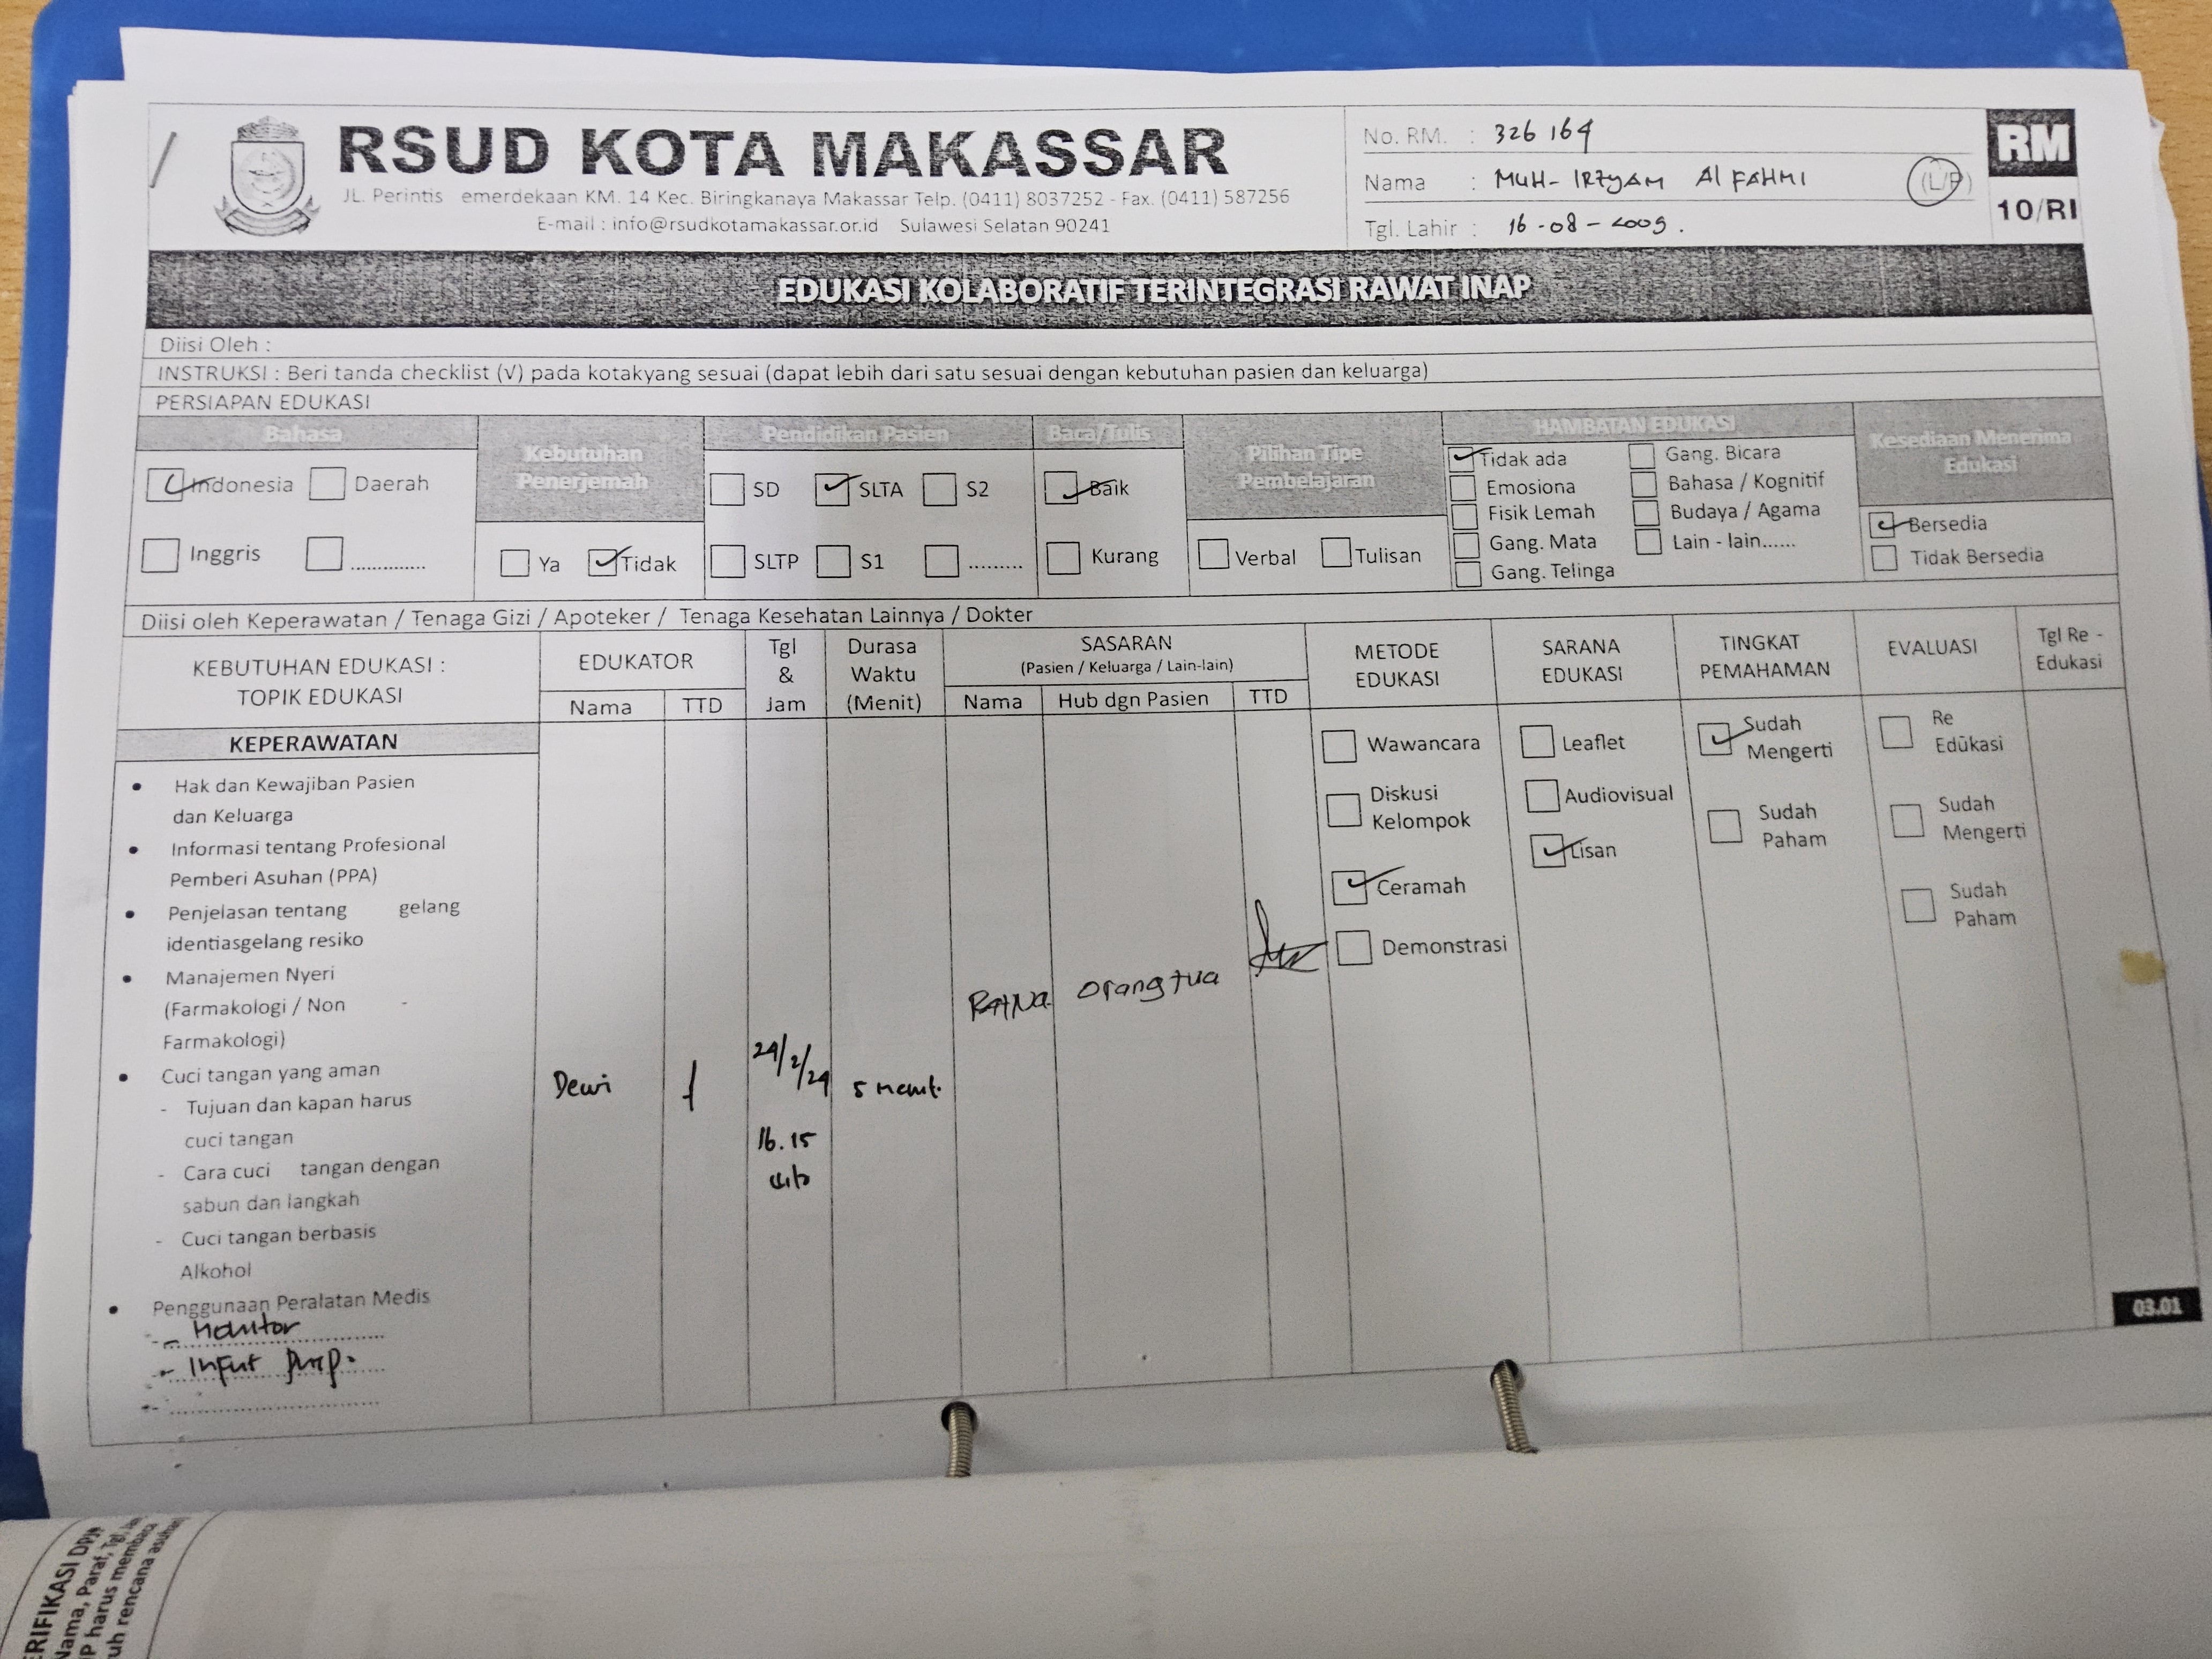 RSUD KOTA MAKASSAR
JL. Perintis emerdekaan KM. 14 Kec. Biringkanaya Makassar Telp. (0411) 8037252 - Fax. (0411) 587256
E-mail : info@rsudkotamakassar.or.id Sulawesi Selatan 90241
No. RM. : 326164
Nama : MUH- IRZYAM Al FAHMI (L/P)
Tgl. Lahir : 16-08-2009.
RM
10/RI
EDUKASI KOLABORATIF TERINTEGRASI RAWAT INAP
Diisi Oleh :
INSTRUKSI : Beri tanda checklist (√) pada kotakyang sesuai (dapat lebih dari satu sesuai dengan kebutuhan pasien dan keluarga)
PERSIAPAN EDUKASI
Bahasa
Indonesia Daerah
Inggris ..............
Kebutuhan
Penerjemah
Ya Tidak
Pendidikan Pasien
SD SLTA S2
SLTP S1 .........
Baca/Tulis
Baik
Kurang
Pilihan Tipe
Pembelajaran
Verbal Tulisan
HAMBATAN EDUKASI
Tidak ada Gang. Bicara
Emosiona Bahasa / Kognitif
Fisik Lemah Budaya / Agama
Gang. Mata Lain - lain......
Gang. Telinga
Kesediaan Menerima
Edukasi
Bersedia
Tidak Bersedia
Diisi oleh Keperawatan / Tenaga Gizi / Apoteker / Tenaga Kesehatan Lainnya / Dokter
KEBUTUHAN EDUKASI :
TOPIK EDUKASI
EDUKATOR
Nama TTD
Tgl
&
Jam
Durasa
Waktu
(Menit)
SASARAN
(Pasien / Keluarga / Lain-lain)
Nama Hub dgn Pasien TTD
METODE
EDUKASI
SARANA
EDUKASI
TINGKAT
PEMAHAMAN
EVALUASI
Tgl Re -
Edukasi
KEPERAWATAN
• Hak dan Kewajiban Pasien
dan Keluarga
• Informasi tentang Profesional
Pemberi Asuhan (PPA)
• Penjelasan tentang gelang
identiasgelang resiko
• Manajemen Nyeri
(Farmakologi / Non -
Farmakologi)
• Cuci tangan yang aman
- Tujuan dan kapan harus
cuci tangan
- Cara cuci tangan dengan
sabun dan langkah
- Cuci tangan berbasis
Alkohol
• Penggunaan Peralatan Medis
- Monitor
- Infut pmp.
Dewi
24/2/24
16.15
5 menit.
RATNA
Orang tua
Wawancara
Diskusi
Kelompok
Ceramah
Demonstrasi
Leaflet
Audiovisual
Lisan
Sudah
Mengerti
Sudah
Paham
Re
Edukasi
Sudah
Mengerti
Sudah
Paham
03.01
ERIFIKASI DPJP
Nama, Paraf, Tgl, Ja
harus membaca
uh rencana asuhan